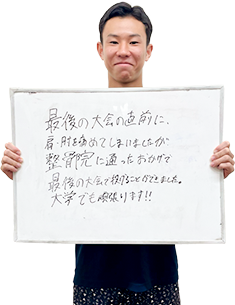 最後の大会の直前に、
肩・肘を痛めてしまいましたが
整骨院に通ったおかげで
最後の大会で投げることができました。
大学でも頑張ります!!